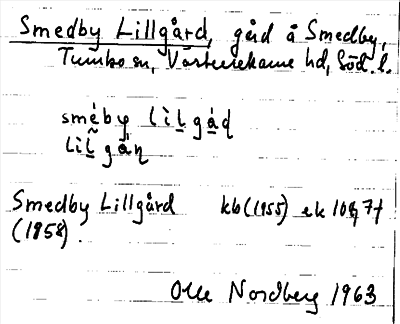 Smedby Lillgård, gård å Smedby,
Tumbo sn, Västerrekarne hd, Söd. l.
smé̀by lìḷgá̱ḍ
lìḷ̃gán̩
Smedby Lillgård kb (1955) ek 10G 7f
(1958).
Olle Nordberg 1963